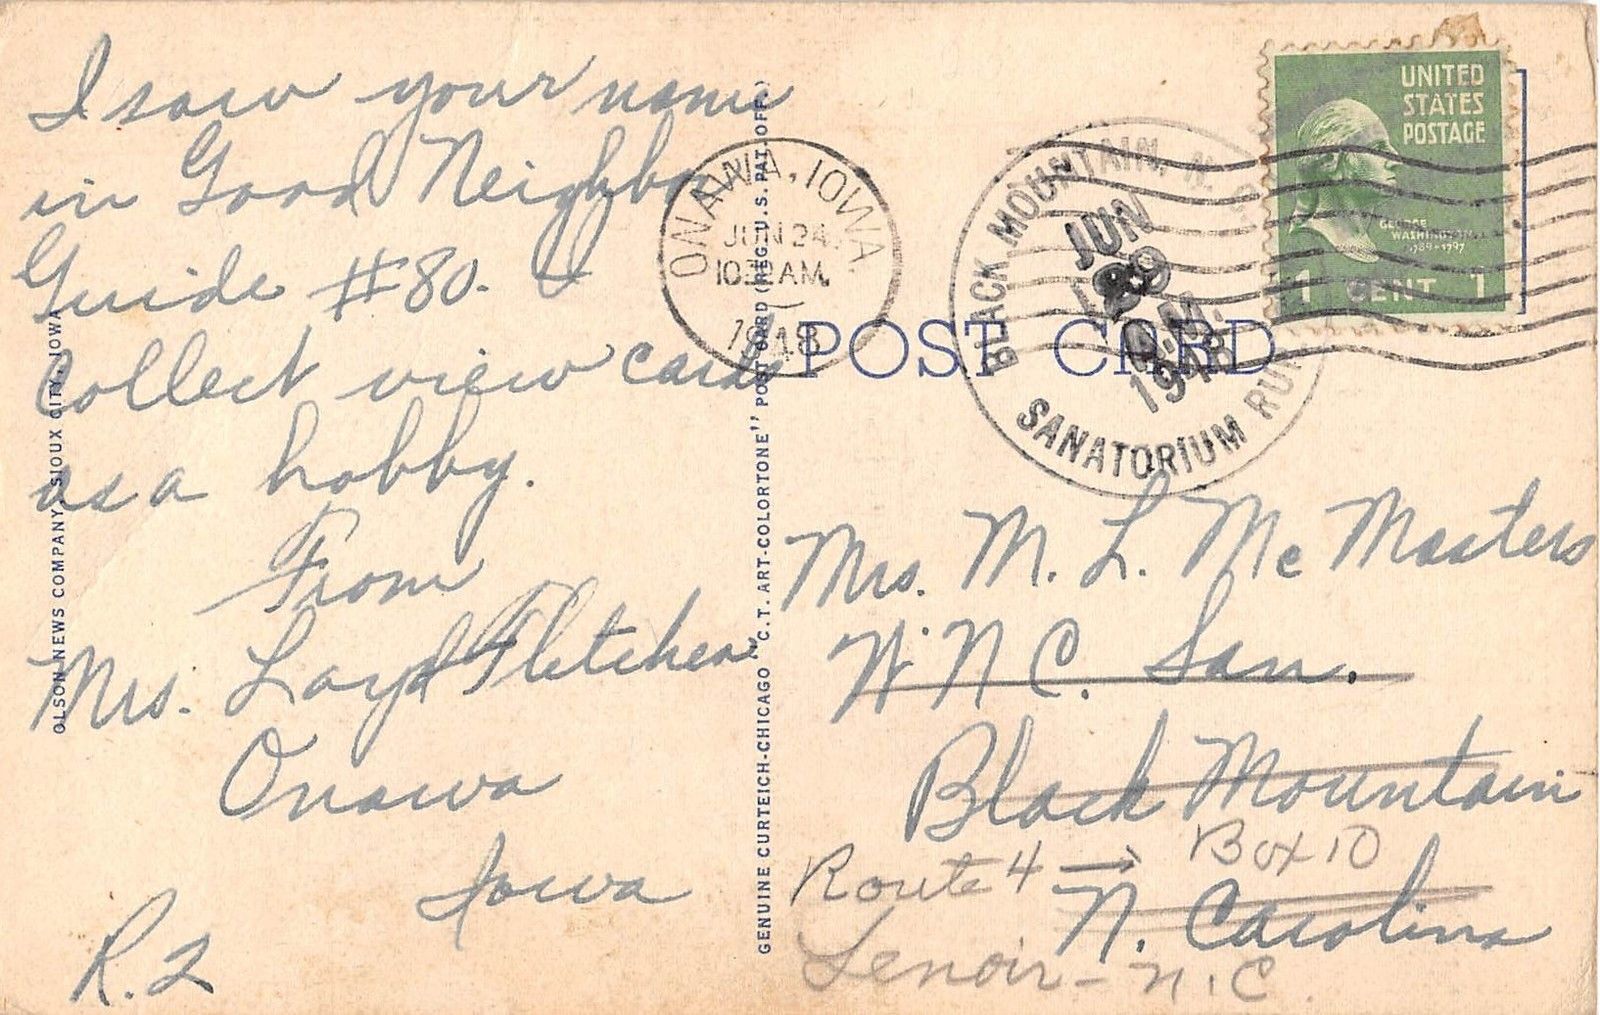 I saw your name
in Good Neighbor
Guide #80. I
collect view cards
as a hobby.
From
Mrs. Loyd Fletcher
Onawa
Iowa
R.2
OLSON NEWS COMPANY, SIOUX CITY, IOWA
GENUINE CURTEICH-CHICAGO "C.T. ART-COLORTONE" POST CARD (REG. U.S. PAT. OFF.)
ONAWA, IOWA.
JUN 24
10 AM
1948
POST CARD
BLACK MOUNTAIN, N. C.
JUN
SANATORIUM RUR
UNITED
STATES
POSTAGE
GEORGE
WASHINGTON
1789-1797
1 CENT 1
Mrs. M. L. Mc Masters
W N C. San.
Black Mountain
N. Carolina
Route 4 → Box 10
Lenoir - N.C